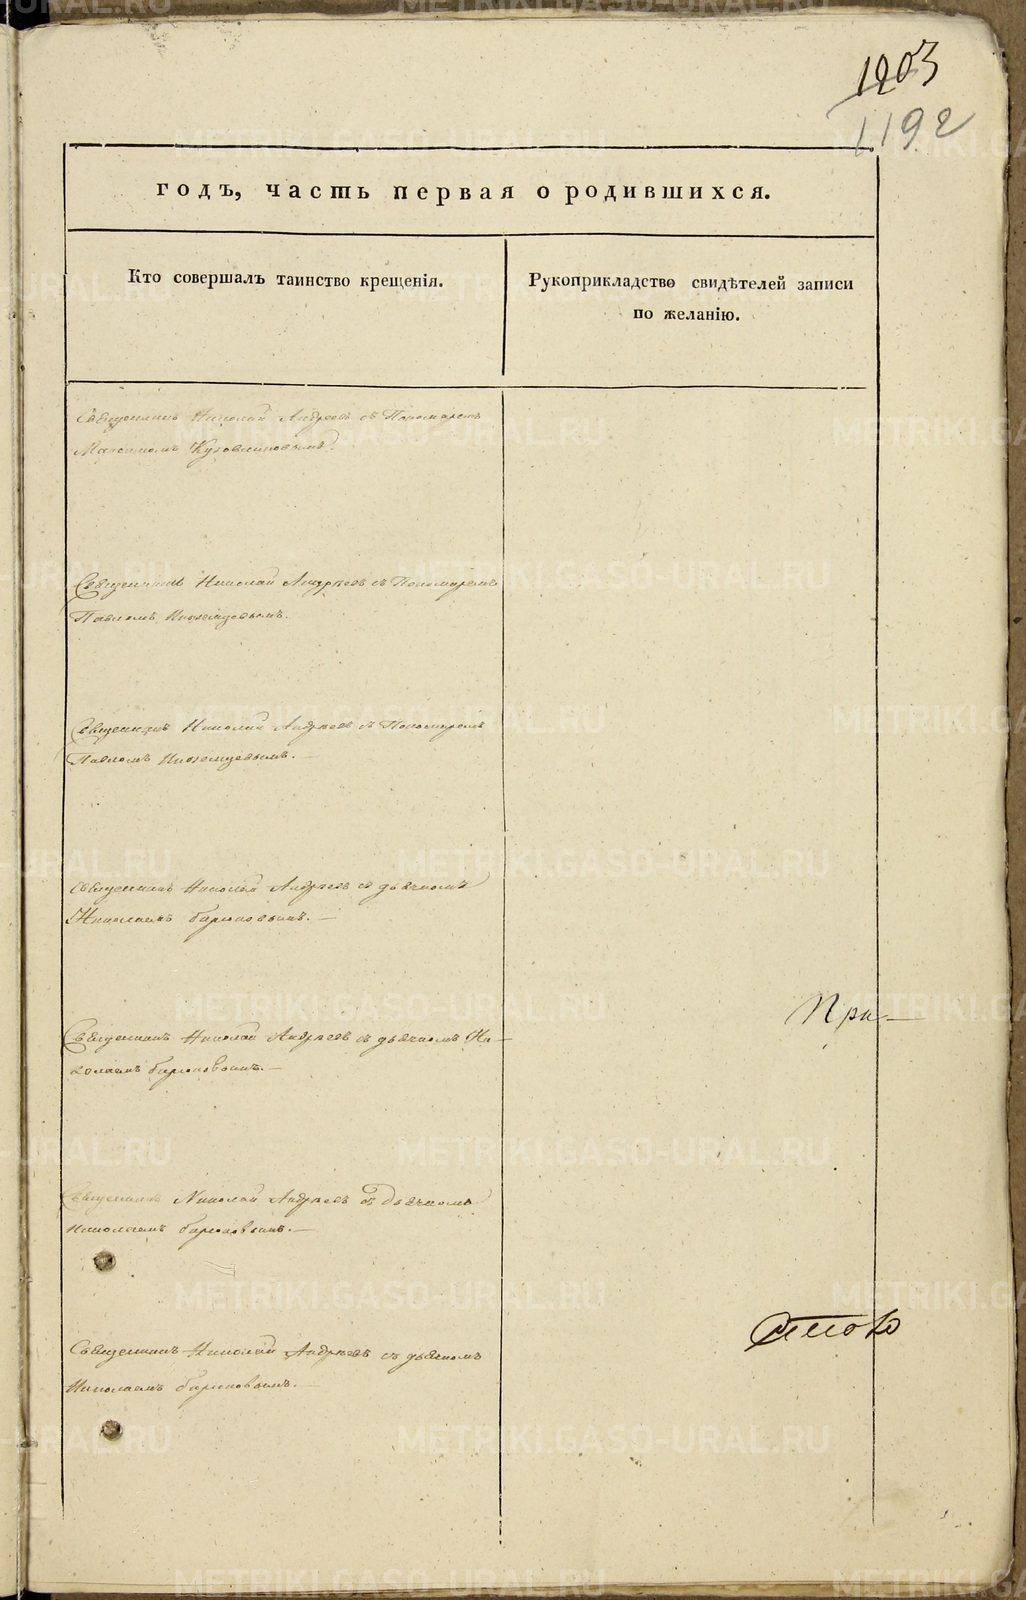 1203
1192
годъ, часть первая о родившихся.
Кто совершалъ таинство крещенія.
Рукоприкладство свидѣтелей записи
по желанію.
Священникъ Николай Андреевъ съ Пономаремъ
Максимомъ
Священникъ Николай Андреевъ съ Пономаремъ
Павломъ Иноземцевымъ.
Священникъ Николай Андреевъ съ Пономаремъ
Павломъ Иноземцевымъ.
Священникъ Николай Андреевъ съ дьячкомъ
Николаемъ
Священникъ Николай Андреевъ съ дьячкомъ Ни-
колаемъ
При-
Священникъ Николай Андреевъ съ Дьячкомъ
Николаемъ
Священникъ Николай Андреевъ съ дьячкомъ
Николаемъ
METRIKI.GASO-URAL.RU